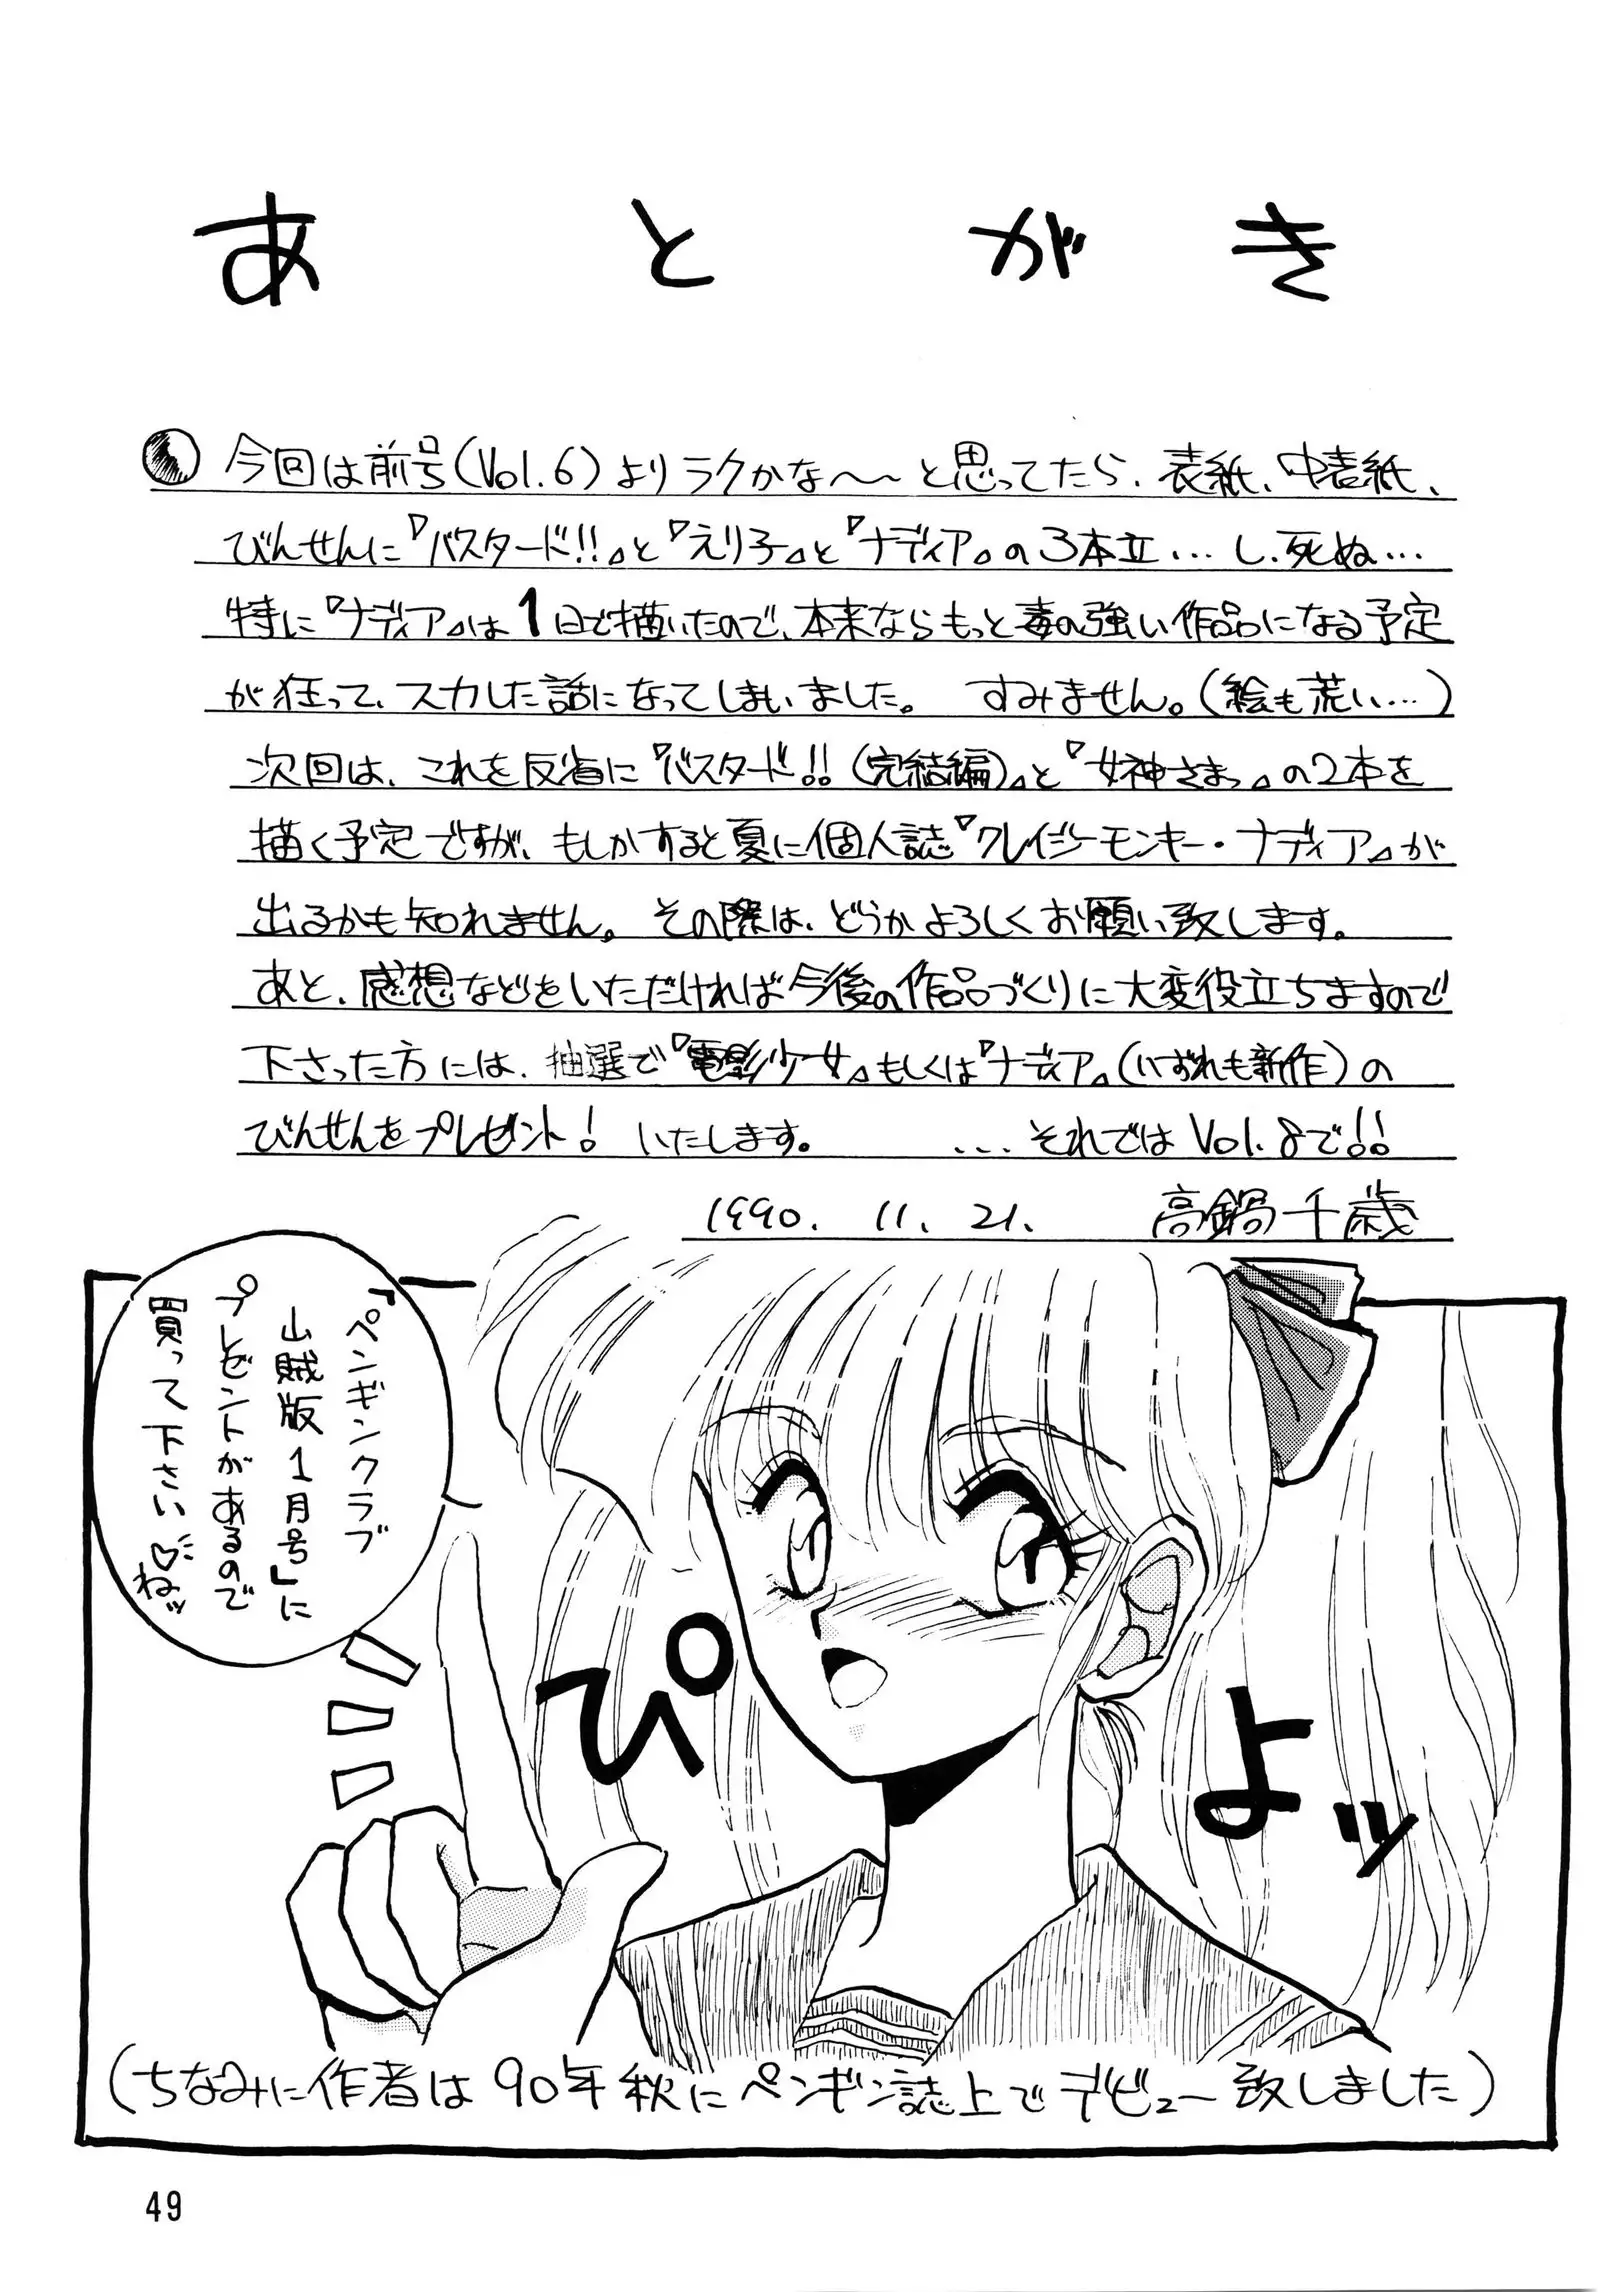 あとがき
今回は前号(Vol.6)よりラクかな〜〜と思ってたら、表紙、中表紙、
びんせんに『バスタード!!』と『えり子』と『ナディア』の3本立…し、死ぬ…
特に『ナディア』は1日で描いたので、本来ならもっと毒の強い作品になる予定
が狂って、スカした話になってしまいました。 すみません。(絵も荒い…)
次回は、これを反省に『バスタード!!(完結編)』と『女神さまっ』の2本を
描く予定ですが、もしかすると夏に個人誌『クレイジーモンキー・ナディア』が
出るかも知れません。その際は、どうかよろしくお願い致します。
あと、感想などをいただければ今後の作品づくりに大変役立ちますので
下さった方には、抽選で『電影少女』もしくは『ナディア』(いずれも新作)の
びんせんをプレゼント! いたします。 …それではVol.8で!!
1990. 11. 21. 高鍋千歳
「ペンギンクラブ
山賊版1月号」に
プレゼントがあるので
買って下さい♡ねッ
ぴ
よッ
(ちなみに作者は90年秋にペンギン誌上でデビュー致しました)
49